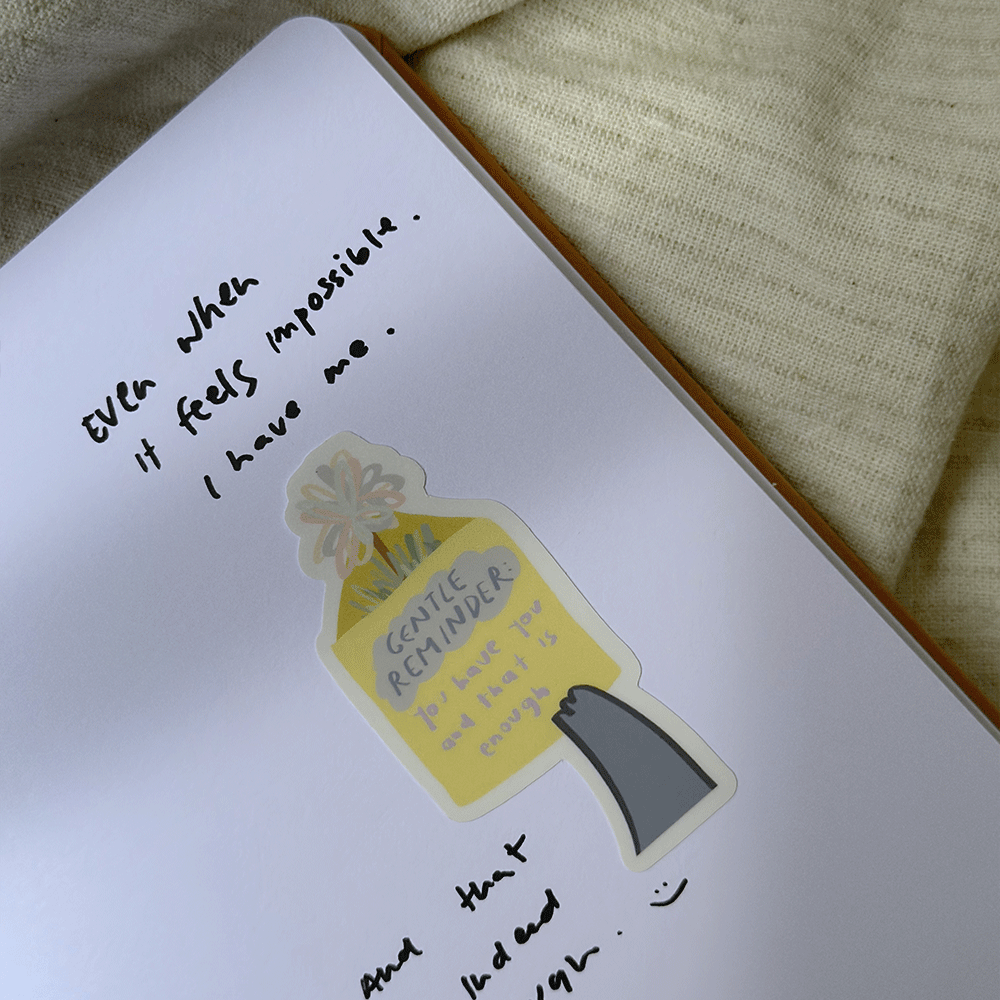 Even when
it feels impossible.
I have me.
GENTLE
REMINDER:
you have you
and that is
enough
And that
indeed